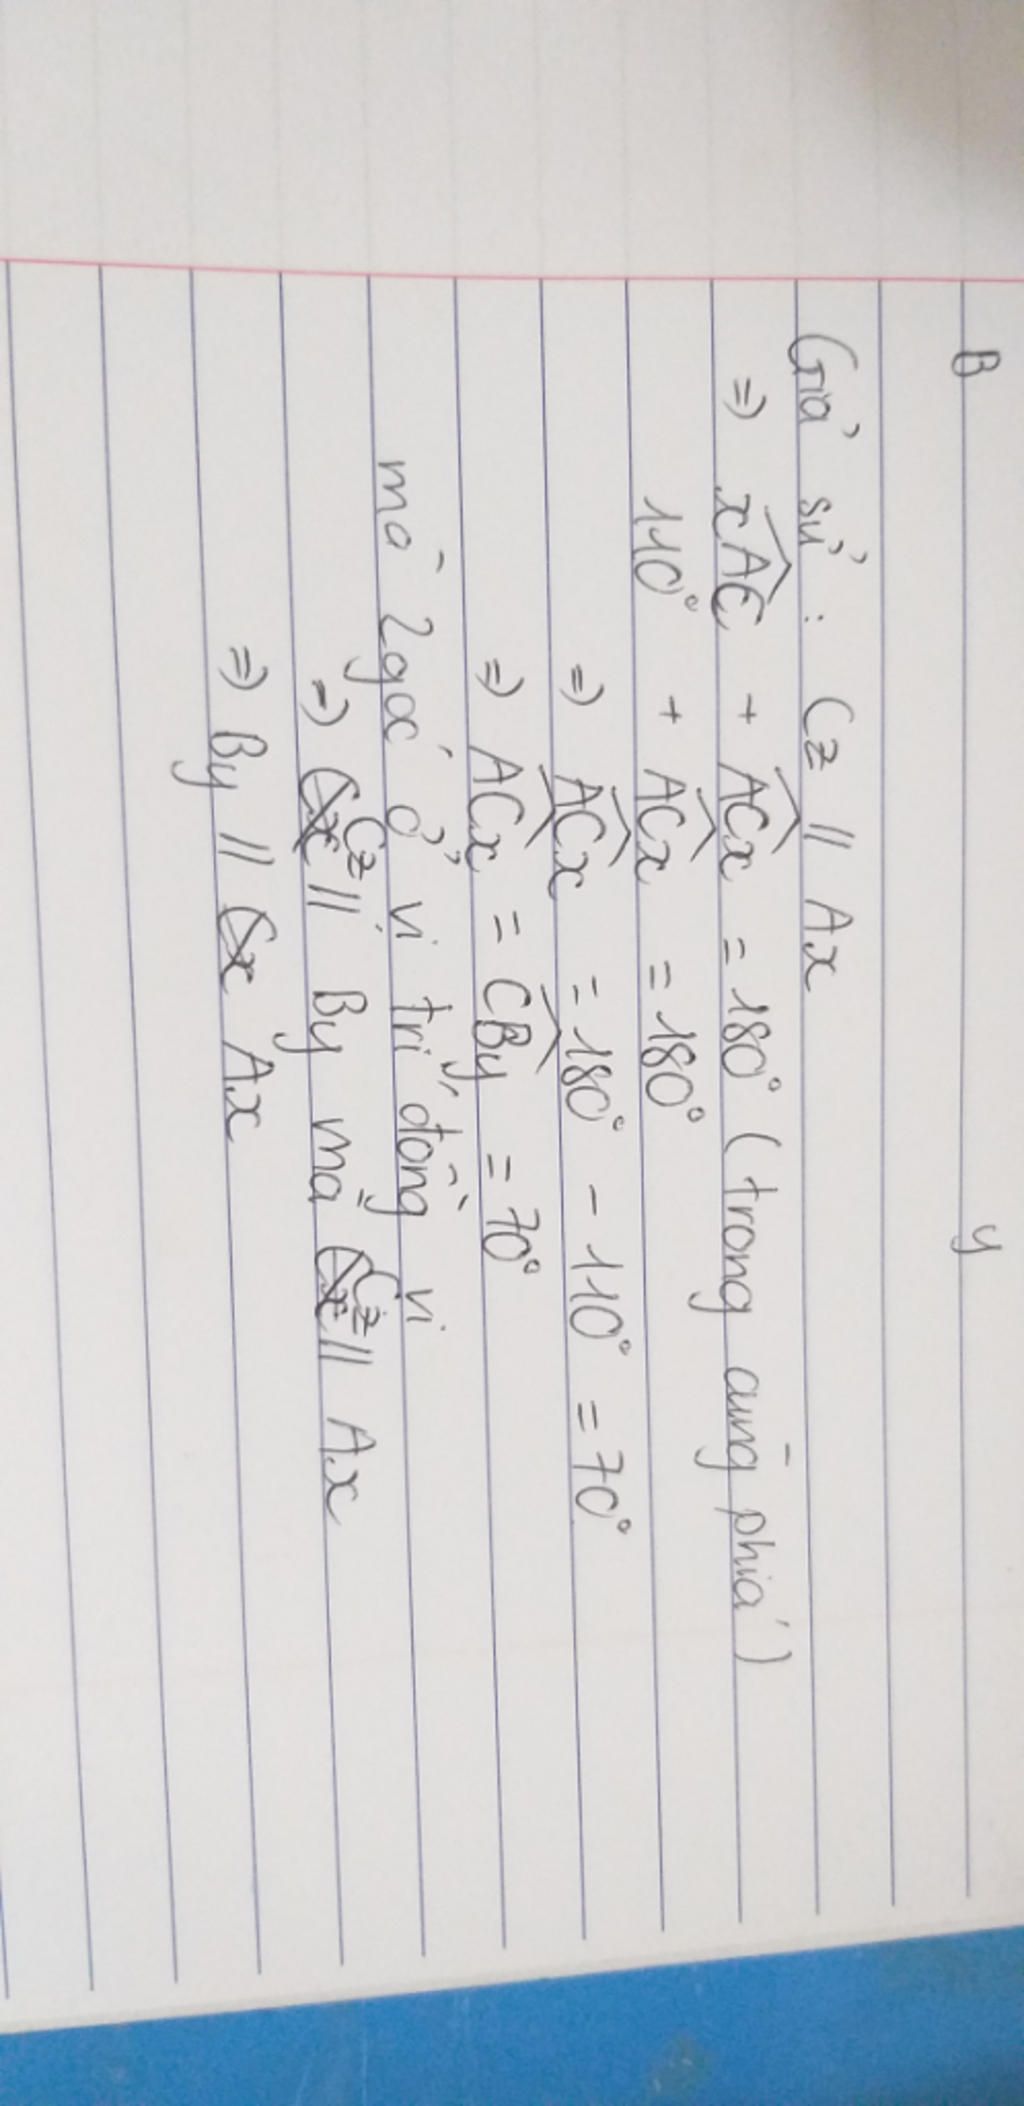 B y
Giả sử : Cz // Ax
=> xAC + ACx = 180° (trong cùng phía)
110° + ACx = 180°
=> ACx = 180° - 110° = 70°
=> ACx = CBy = 70°
mà 2 góc ở vị trí đồng vị
=> Cz // By mà Cz // Ax
=> By // Ax